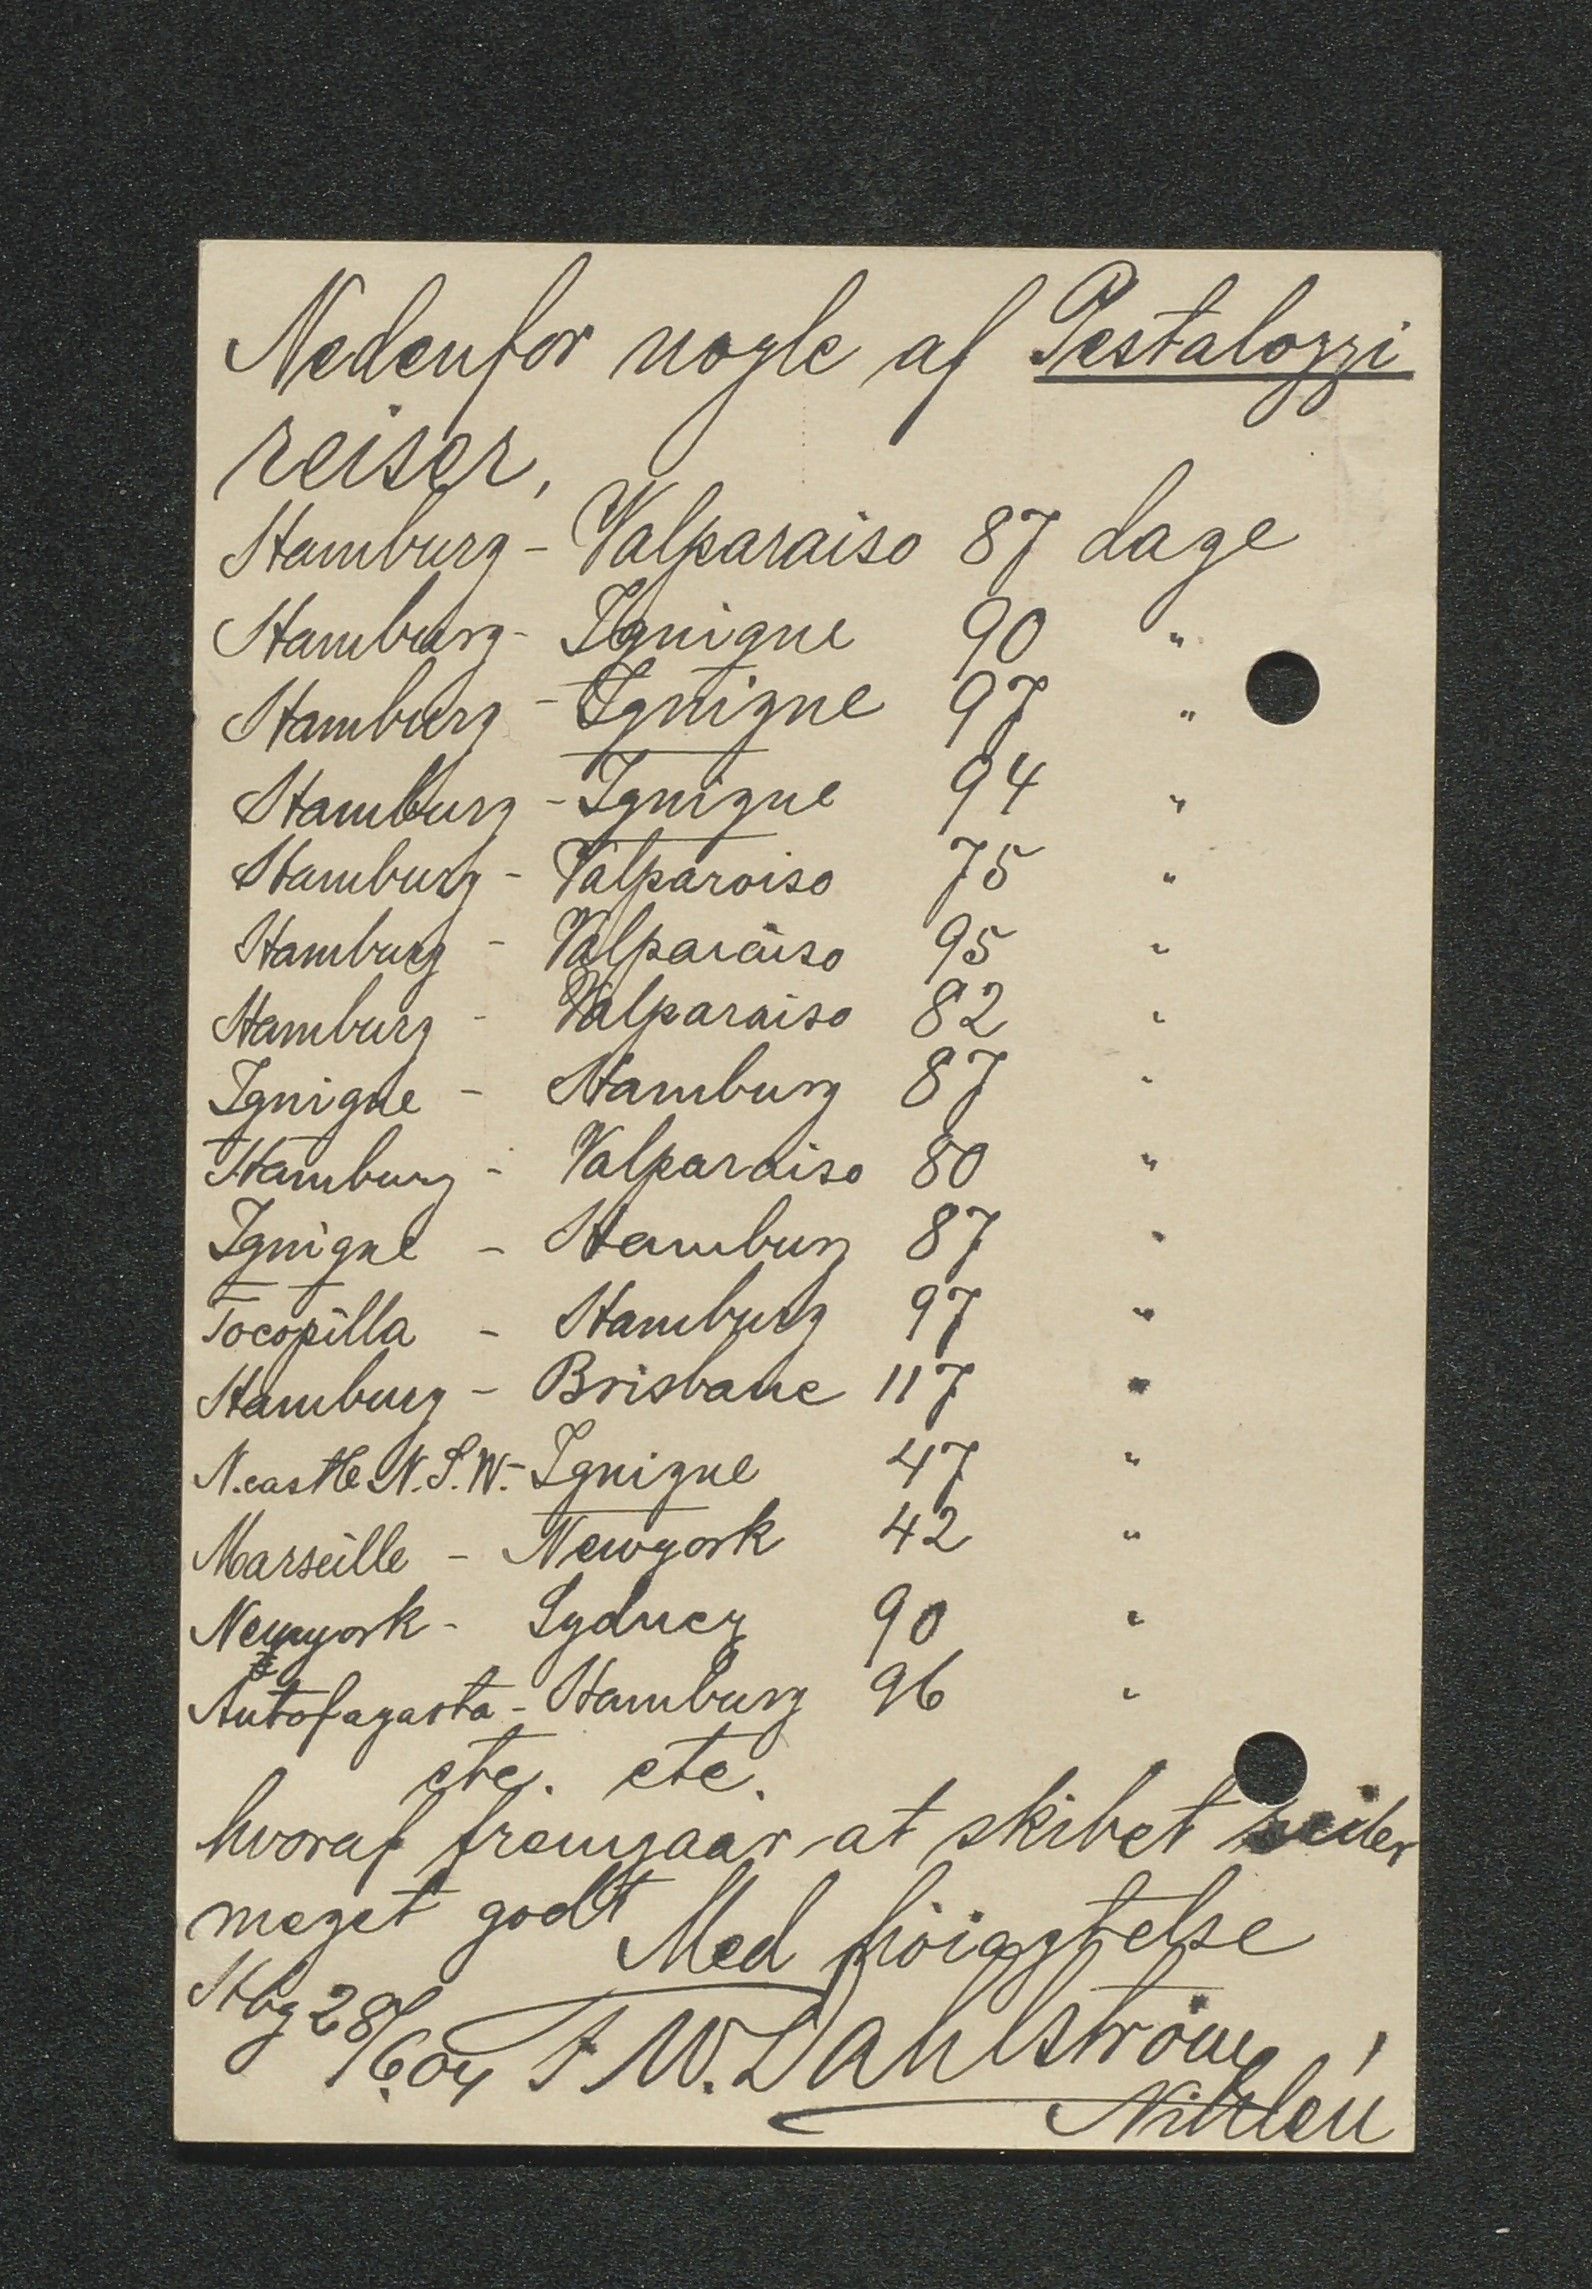 Nedenfor nogle af Pestalozzi
reiser,
Hamburg - Valparaiso 87 dage
Hamburg - Iquique 90 "
Hamburg - Iquique 97 "
Hamburg - Iquique 94 "
Hamburg - Valparaiso 75 "
Hamburg - Valparaiso 95 "
Hamburg - Valparaiso 82 "
Iquique - Hamburg 87 "
Hamburg - Valparaiso 80 "
Iquique - Hamburg 87 "
Tocopilla - Hamburg 97 "
Hamburg - Brisbane 117 "
N.castle N.S.W. - Iquique 47 "
Marseille - Newyork 42 "
Newyork - Sydney 90 "
Antofagasta - Hamburg 96 "
etc. etc.
hvoraf fremgaar at skibet seiler
meget godt Med höiagtelse
Hbg 28/6.04 F W. Dahlström